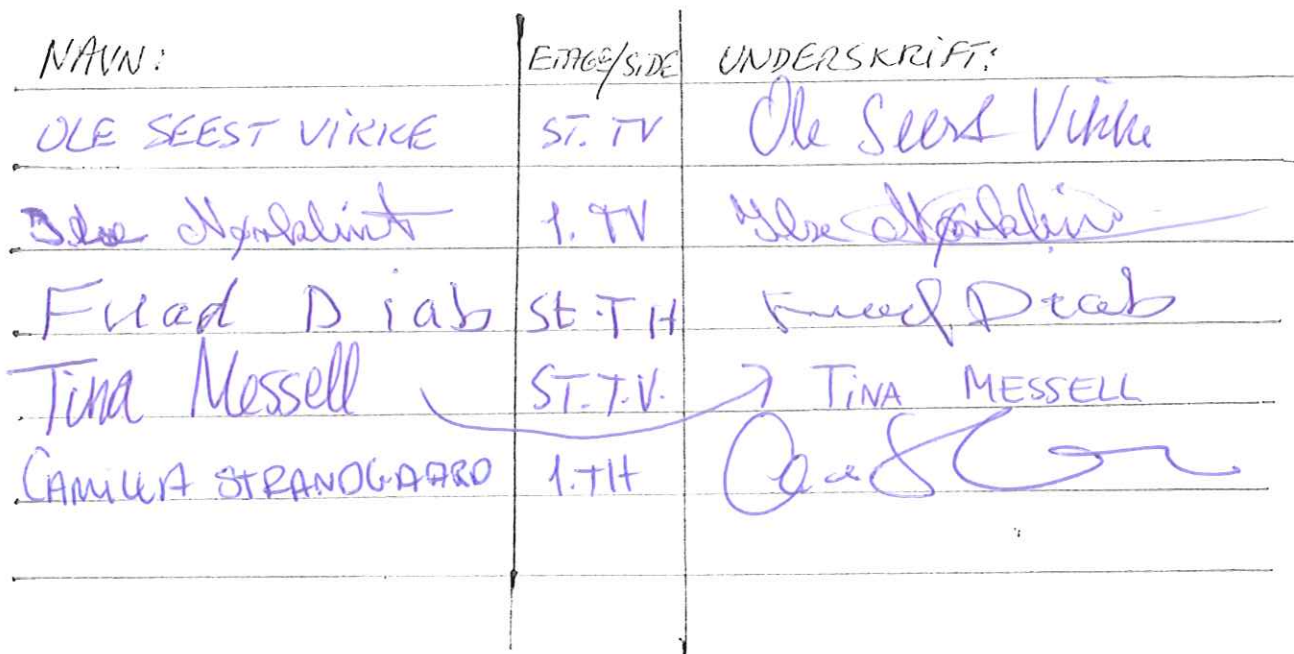 NAVN: ETAGE/SIDE UNDERSKRIFT:
OLE SEEST VIKKE ST. TV Ole Seest Vikke
Ilse Nørklint 1. TV Ilse Nørklint
Fuad Diab St.TH Fuad Diab
Tina Messell ST.T.V. TINA MESSELL
CAMILLA STRANDGAARD 1.TH